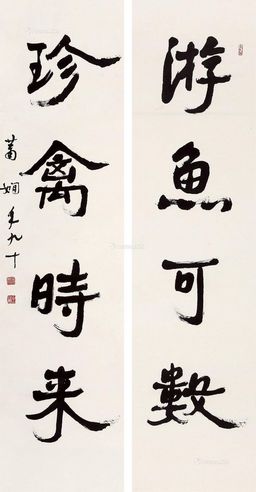 游魚可數
珍禽時来
蕭嫻年九十